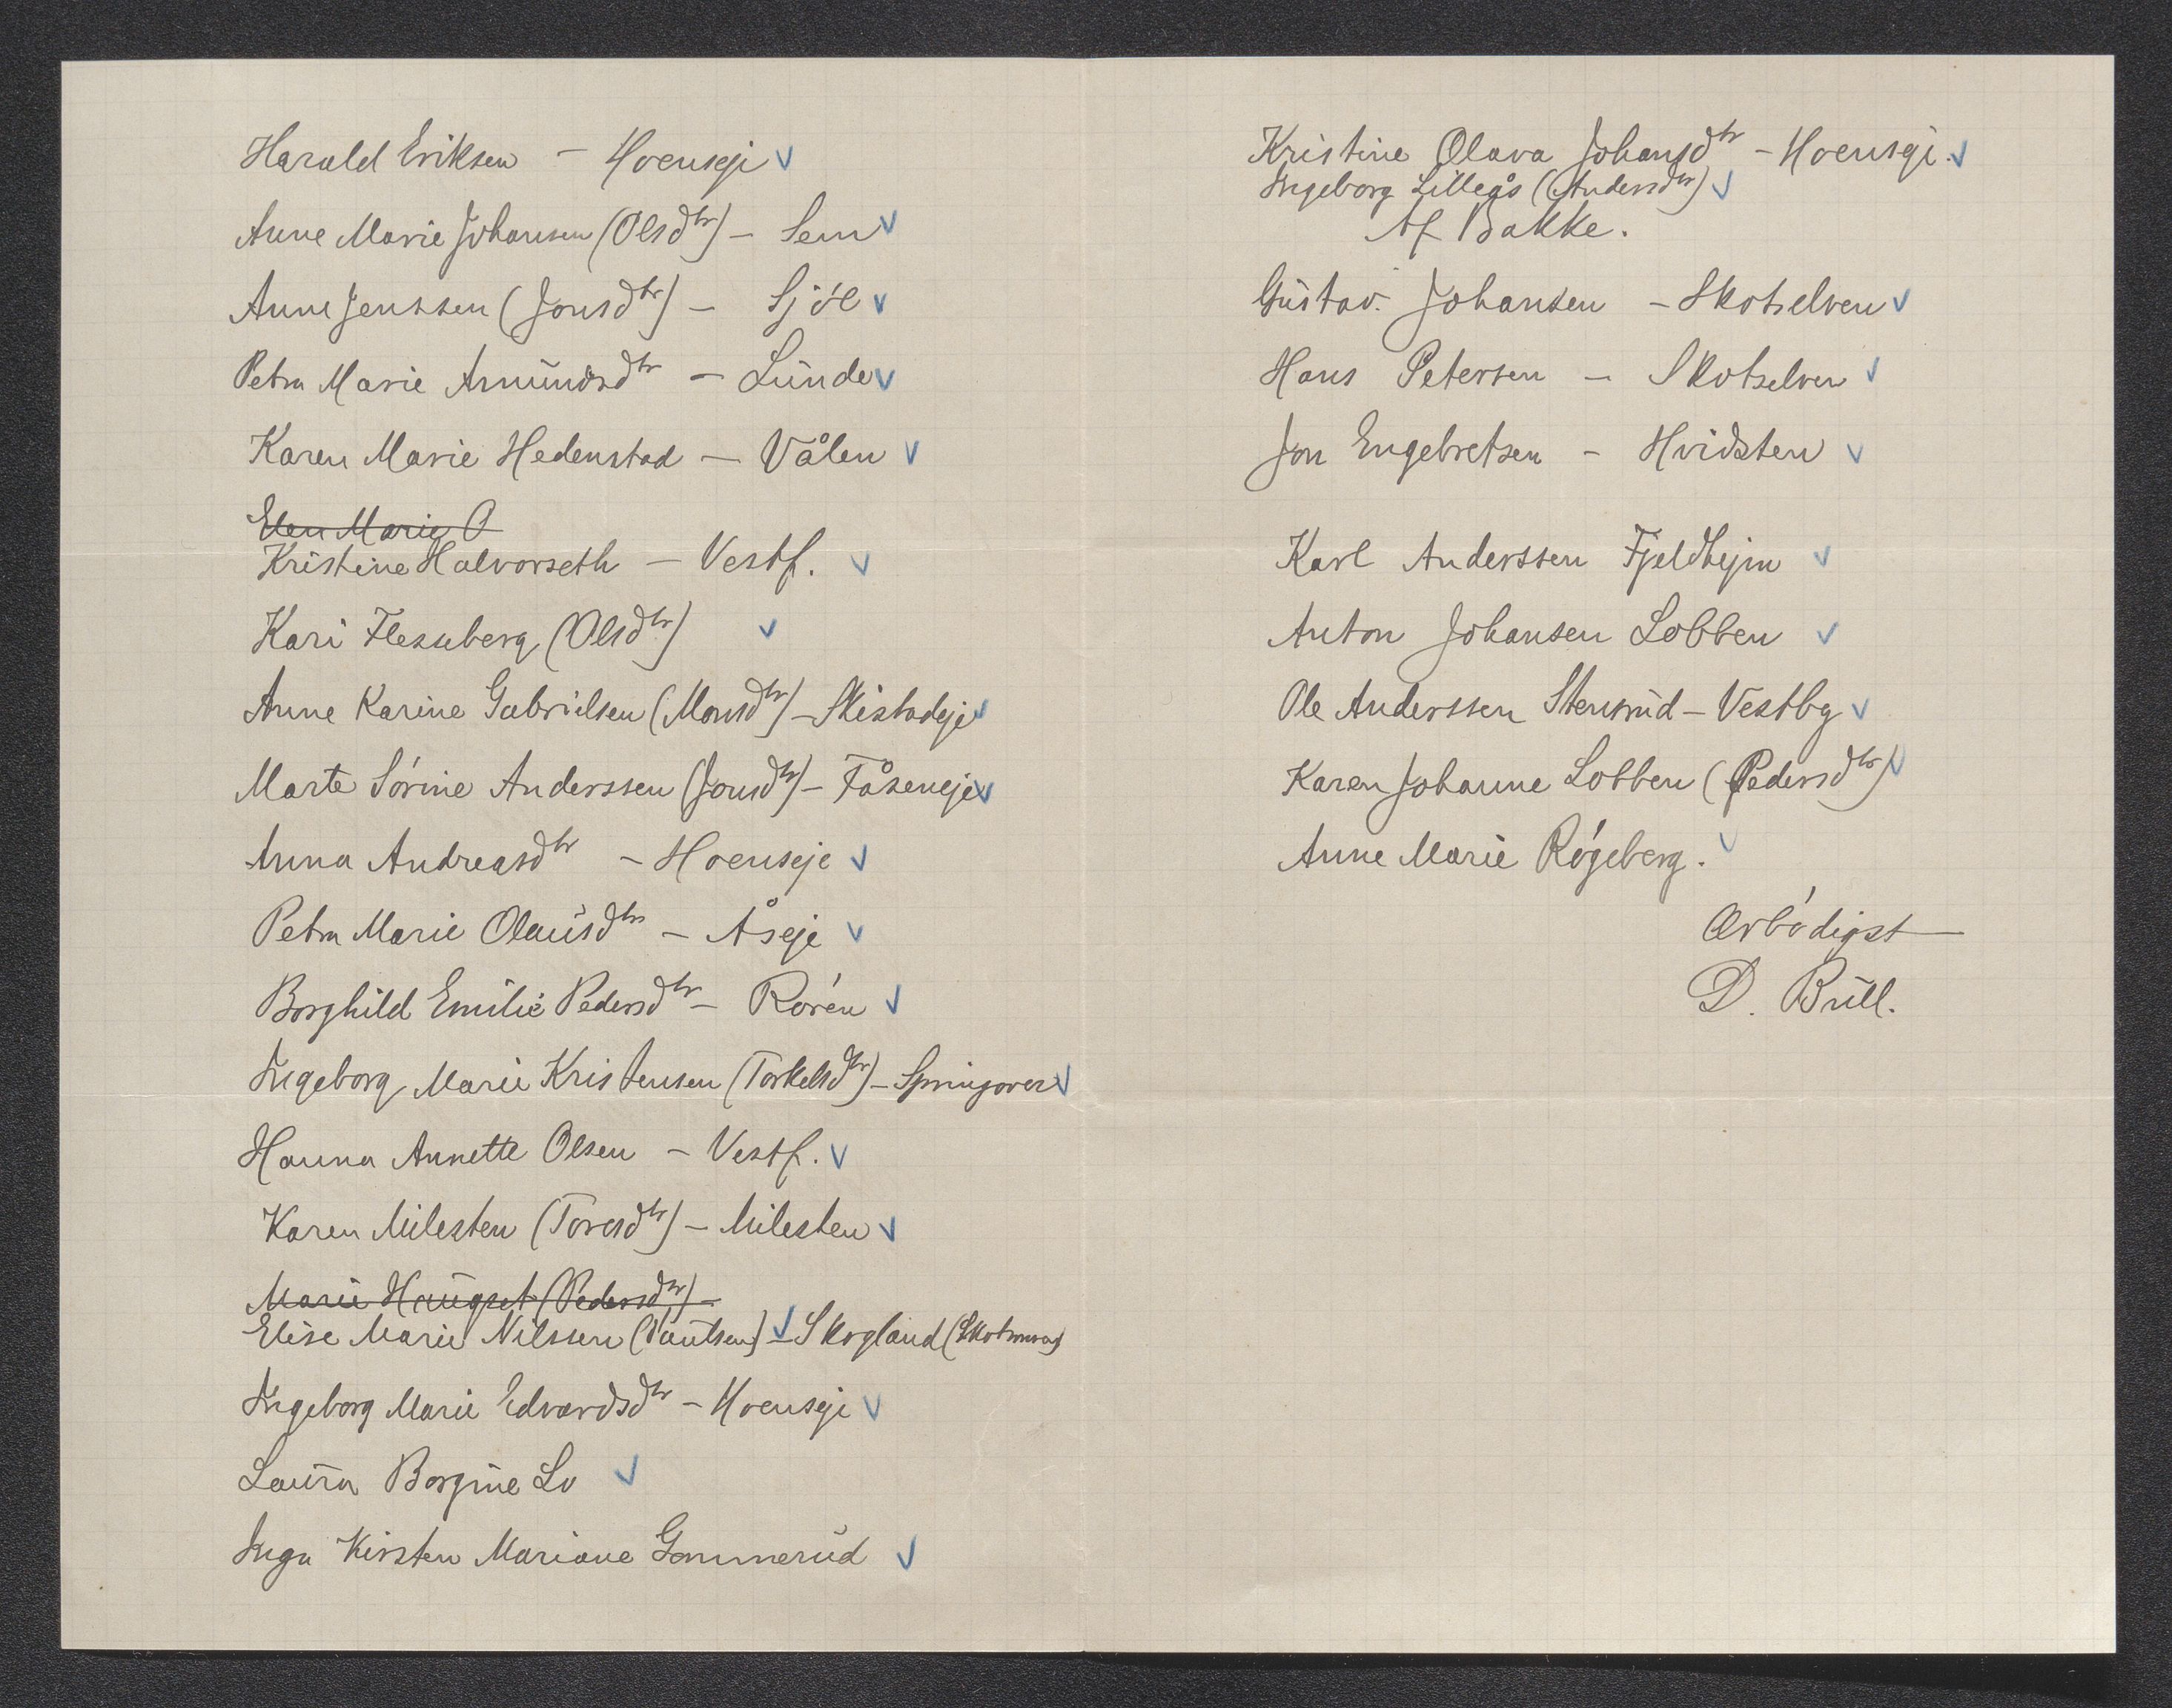 Harald Eriksen – Hoenseje
Anne Marie Johansen (Olsdtr) – Sem
Anne Jenssen (Jonsdtr) – Sjöl
Petra Marie Amundsdtr – Lunde
Karen Marie Hedenstad – Vålen
Elen Marie O
Kristine Halvorseth – Vestf.
Kari Flesseberg (Olsdtr)
Anne Karine Gabrielsen (Monsdtr) – Skistadeje
Marte Sörine Anderssen (Jonsdtr) – Fåseneje
Anna Andreasdtr – Hoenseje
Petra Marie Olausdtr – Åseje
Borghild Emilie Pedersdtr – Roren
Ingeborg Marie Kristensen (Torkelsdtr) –
Hanna Annette Olsen – Vestf.
Karen Milesten (Toresdtr) – Milesten
Marie Haugset (Pedersdtr) –
Elise Marie Nilssen – Skogland
Ingeborg Marie Edvardsdtr – Hoenseje
Laura Borgine Lo
Inga Kirsten Mariane Gommerud
Kristine Olava Johansdtr – Hoenseje.
Ingeborg Lillegås (Andersdtr)
Af Bakke.
Gustav Johansen – Skotselven
Hans Petersen – Skotselven
Jon Engebretsen – Hvidsten
Karl Anderssen Fjeldhejm
Anton Johansen Lobben
Ole Anderssen Stensrud – Vestbg
Karen Johanne Lobben (Pedersdtr)
Anne Marie Rógeberg.
Ærbódigst
D. Bull.